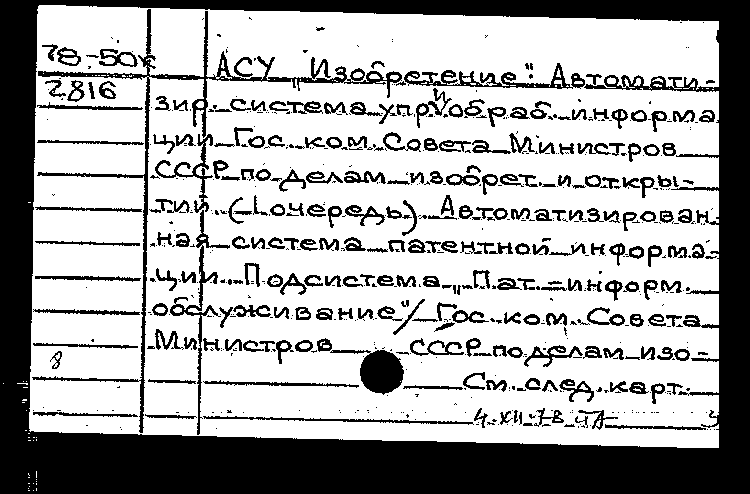 78-50к
2816
АСУ „Изобретение": Автомати-
зир. система упр. и обраб. информа
ции Гос. ком. Совета Министров
СССР по делам изобрет. и откры-
тий (I очередь). Автоматизирован-
ная система патентной информа-
ции. Подсистема „Пат.=информ.
обслуживание"/ Гос. ком. Совета
Министров СССР по делам изо-
8
См. след. карт.
4.XII.78